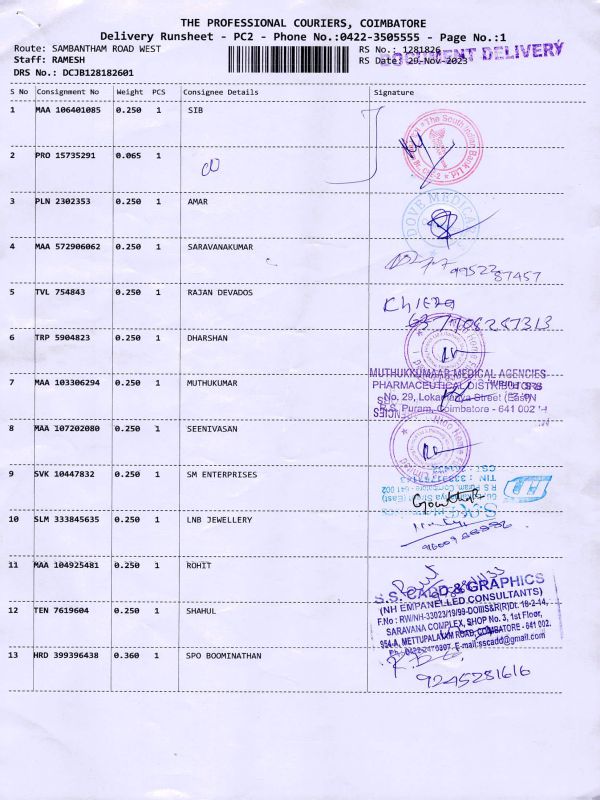 THE PROFESSIONAL COURIERS, COIMBATORE
Delivery Runsheet - PC2 - Phone No.:0422-3505555 - Page No.:1
Route: SAMBANTHAM ROAD WEST
RS No.: 1281826
DOCUMENT DELIVERY
Staff: RAMESH
RS Date: 29-Nov-2023
DRS No.: DCJB128182601
S No Consignment No Weight PCS Consignee Details Signature
1 MAA 106401085 0.250 1 SIB
The South Indian Bank Ltd
2 PRO 15735291 0.065 1
3 PLN 2302353 0.250 1 AMAR
DOVE MEDICAL
4 MAA 572906062 0.250 1 SARAVANAKUMAR
99522 87457
5 TVL 754843 0.250 1 RAJAN DEVADOS
7708287313
6 TRP 5904823 0.250 1 DHARSHAN
7 MAA 103306294 0.250 1 MUTHUKUMAR
MUTHUKKUMAAR MEDICAL AGENCIES
PHARMACEUTICAL DISTRIBUTORS
No. 29, Lokamanya Street (East)
R.S. Puram, Coimbatore - 641 002
8 MAA 107202080 0.250 1 SEENIVASAN
9 SVK 10447832 0.250 1 SM ENTERPRISES
10 SLM 333845635 0.250 1 LNB JEWELLERY
11 MAA 104925481 0.250 1 ROHIT
12 TEN 7619604 0.250 1 SHAHUL
S.S. CADD & GRAPHICS
(NH EMPANELLED CONSULTANTS)
F.No : RW/NH-33023/19/99-DOIII S&R(R)Dt. 18-2-14,
SARAVANA COMPLEX, SHOP No. 3, 1st Floor,
954-A, METTUPALAYAM ROAD, COIMBATORE - 641 002.
Ph : 0422-2470307, E-mail:sscadd@gmail.com
13 HRD 399396438 0.360 1 SPO BOOMINATHAN
9245281616